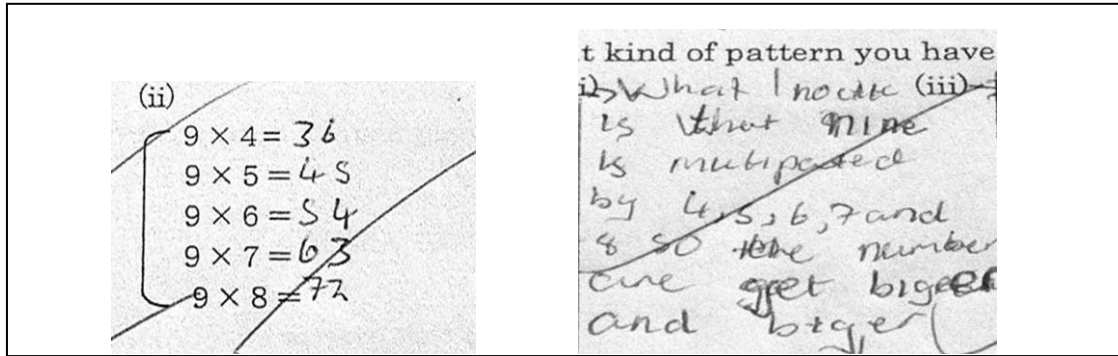 (ii)
9 × 4 = 36
9 × 5 = 45
9 × 6 = 54
9 × 7 = 63
9 × 8 = 72
t kind of pattern you have
i) What I (iii)
is that nine
is
by 4, 5, 6, 7 and
8 so the number
are get biger
and biger